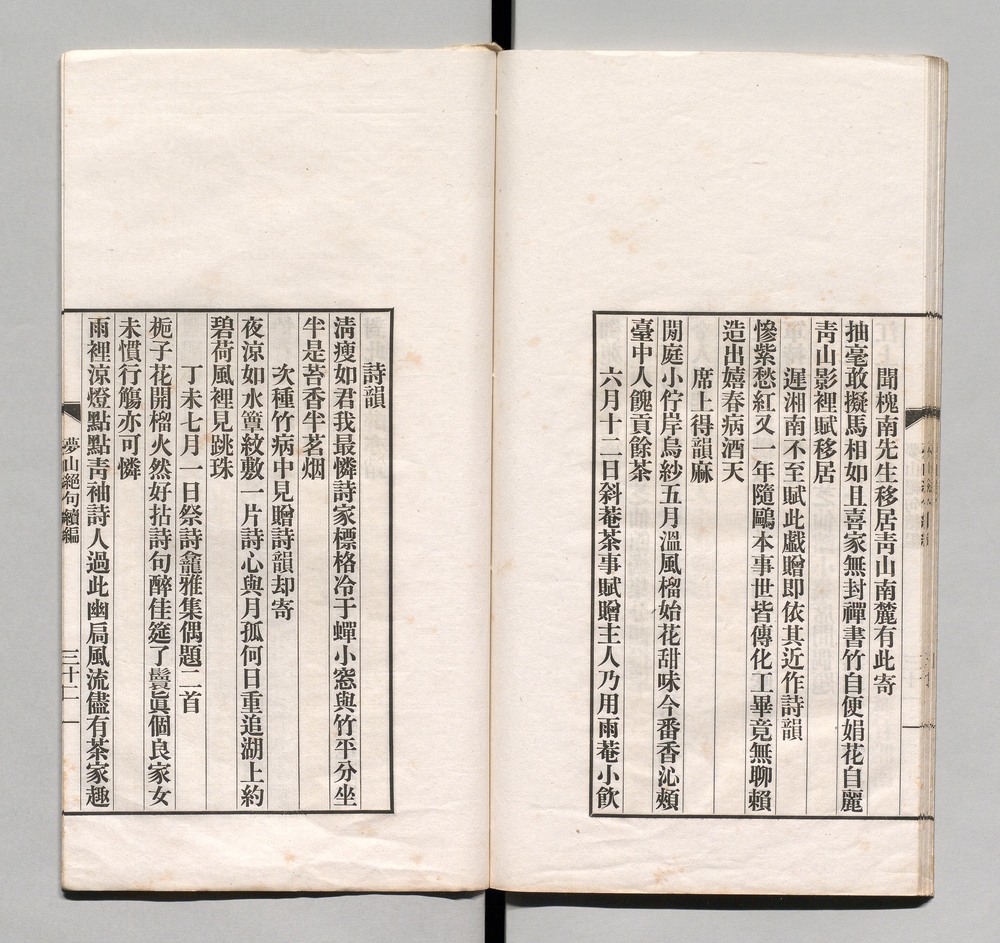 聞槐南先生移居靑山南麓有此寄
抽毫敢擬馬相如且喜家無封禪書竹自便娟花自麗
靑山影裡賦移居
遲湘南不至賦此戲贈即依其近作詩韻
慘紫愁紅又一年隨鷗本事世皆傳化工畢竟無聊賴
造出嬉春病酒天
席上得韻麻
閒庭小佇岸烏紗五月溫風榴始花甜味今番香沁頰
臺中人餽貢餘茶
六月十二日斜菴茶事賦贈主人乃用雨菴小飮
詩韻
淸瘦如君我最憐詩家標格冷于蟬小窓與竹平分坐
半是苔香半茗烟
次種竹病中見贈詩韻却寄
夜凉如水簟紋敷一片詩心與月孤何日重追湖上約
碧荷風裡見跳珠
丁未七月一日祭詩龕雅集偶題二首
梔子花開榴火然好拈詩句醉佳筵了鬟眞個良家女
未慣行觴亦可憐
雨裡涼燈點點靑袖詩人過此幽扃風流儘有茶家趣
夢山絕句續編
三十二